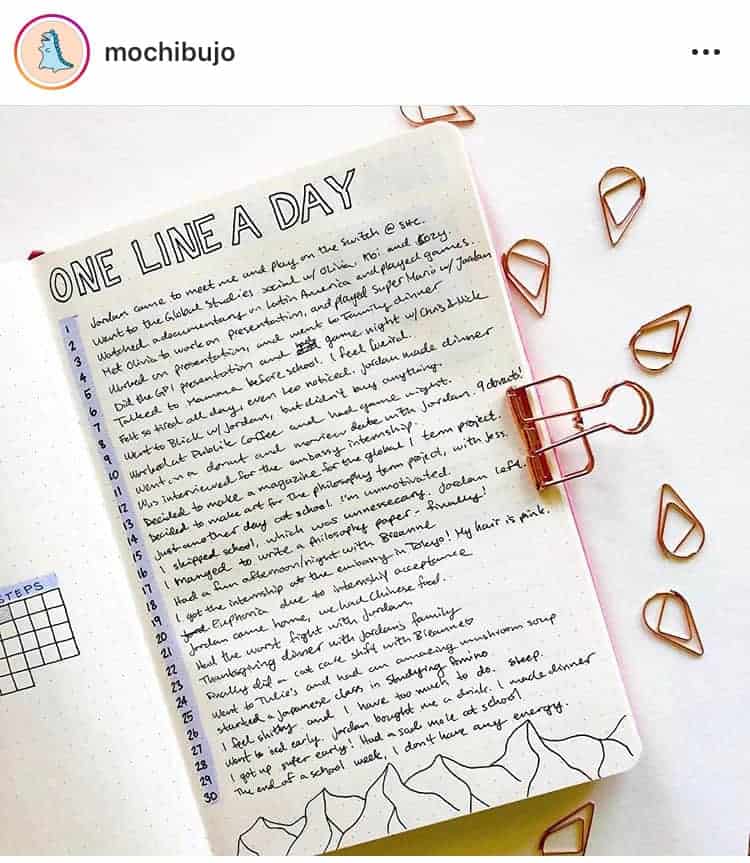 mochibujo
ONE LINE A DAY
1 Jordan came to meet me and play on the Switch @ SHC.
2 Went to the Global Studies social w/ Olivia, Koi and Cozy.
3 Watched a documentary on Latin America and played games.
4 Met Olivia to work on presentation, and played Super Mario w/ Jordan
5 Worked on presentation, and went to family dinner
6 Did the GPI presentation and game night w/ Chris & Nick
7 Talked to Mamma before school. I feel weird.
8 Felt so tired all day, even Leo noticed. Jordan made dinner
9 Went to Blick w/ Jordan, but didn't buy anything.
10 Worked at Publik Coffee and had game night.
11 Went on a donut and movie date with Jordan. 9 donuts!
12 Was interviewed for the embassy internship.
13 Decided to make a magazine for the global 1 term project.
14 Decided to make art for the philosophy term project, with Jess.
15 Just another day at school. I'm unmotivated.
16 I skipped school, which was unnecessary. Jordan left.
17 I managed to write a philosophy paper - finally!
18 Had a fun afternoon/night with Breanne
19 I got the internship at the embassy in Tokyo! My hair is pink.
20 Euphoria due to internship acceptance
21 Jordan came home, we had Chinese food.
22 Had the worst fight with Jordan
23 Thanksgiving dinner with Jordan's family
24 Finally did a cat cafe shift with Breanne♡
25 Went to Julie's and had an amazing mushroom soup
26 started a Japanese class in Studying Amino
27 I feel shitty and I have too much to do. sleep.
28 Went to bed early. Jordan bought me a drink. I made dinner
29 I got up super early! Had a sad mole at school
30 The end of a school week, I don't have any energy.
STEPS